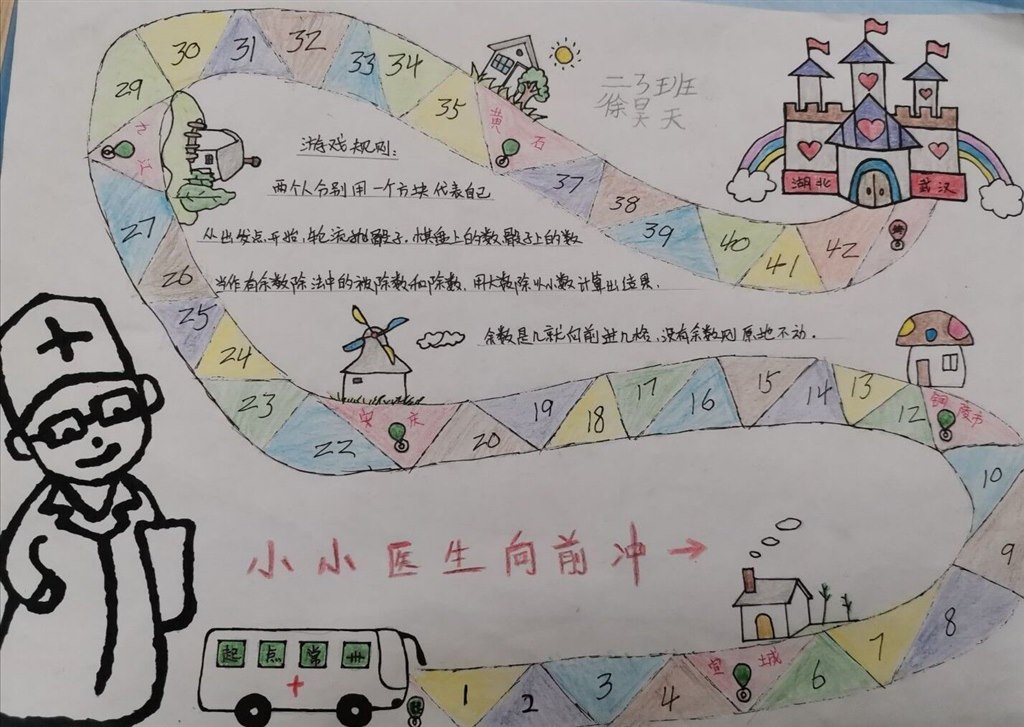 二3班
徐昊天
湖北 武汉
游戏规则:
两个人分别用一个方块代表自己
从出发点开始,轮流抛骰子.棋盘上的数骰子上的数
当作有余数除法中的被除数和除数,用大数除以小数计算出结果.
余数是几就向前进几格,没有余数则原地不动.
小小医生向前冲→
起点常州
1
2
3
4
宣城
6
7
8
9
10
铜陵市
12
13
14
15
16
17
18
19
20
安庆
22
23
24
25
26
27
九江
29
30
31
32
33
34
35
黄石
37
38
39
40
41
42